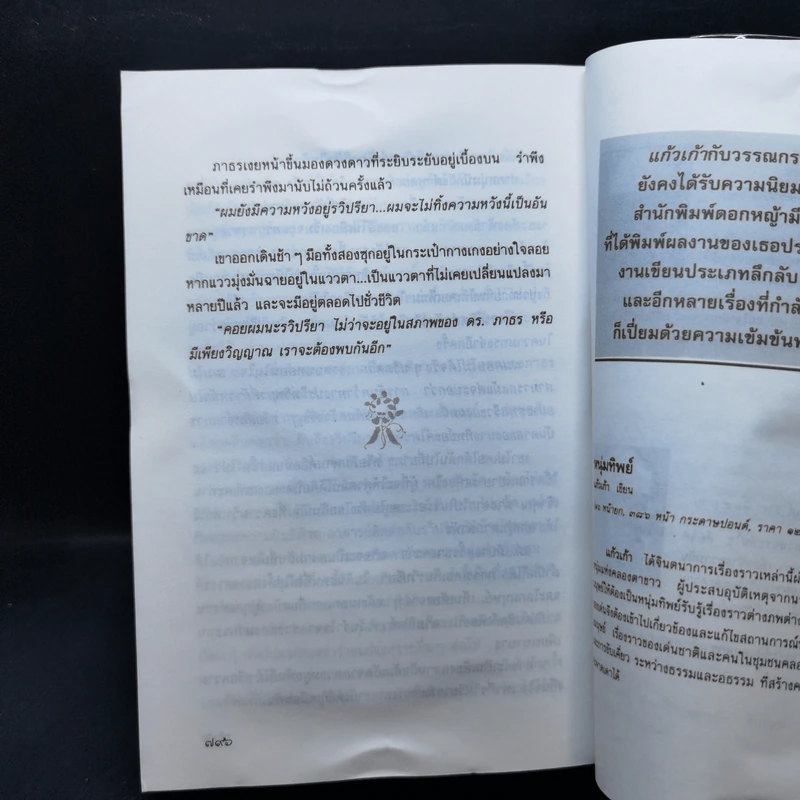 ภาธรเงยหน้าขึ้นมองดวงดาวที่ระยิบระยับอยู่เบื้องบน รำพึง
เหมือนที่เคยรำพึงมานับไม่ถ้วนครั้งแล้ว
“ผมยังมีความหวังอยู่รวิปรียา...ผมจะไม่ทิ้งความหวังนี้เป็นอัน
ขาด”
เขาออกเดินช้า ๆ มือทั้งสองซุกอยู่ในกระเป๋ากางเกงอย่างใจลอย
หากแววมุ่งมั่นฉายอยู่ในแววตา...เป็นแววตาที่ไม่เคยเปลี่ยนแปลงมา
หลายปีแล้ว และจะมีอยู่ตลอดไปชั่วชีวิต
“คอยผมนะรวิปรียา ไม่ว่าจะอยู่ในสภาพของ ดร. ภาธร หรือ
มีเพียงวิญญาณ เราจะต้องพบกันอีก”
๗๙๖
แก้วเก้ากับวรรณกร
ยังคงได้รับความนิยม
สำนักพิมพ์ดอกหญ้ามี
ที่ได้พิมพ์ผลงานของเธอประ
งานเขียนประเภทลึกลับ
และอีกหลายเรื่องที่กำลั
ก็เปี่ยมด้วยความเข้มข้น
หนุ่มทิพย์
แก้วเก้า เขียน
หน้ายก. ๓๘๖ หน้า กระดาษปอนด์, ราคา ๑๒
แก้วเก้า ได้จินตนาการเรื่องราวเหล่านี้
หนุ่มแห่งคลองตาขาว ผู้ประสบอุบัติเหตุจาก
ให้ต้องเป็นหนุ่มทิพย์รับรู้เรื่องราวต่างภพต่าง
จึงต้องเข้าไปเกี่ยวข้องและแก้ไขสถานการณ์
มนุษย์ เรื่องราวของเด่นชาติและคนในชุมชนคลอง
การขับเคี่ยว ระหว่างธรรมและอธรรม ที่สร้าง
คาดเดาได้